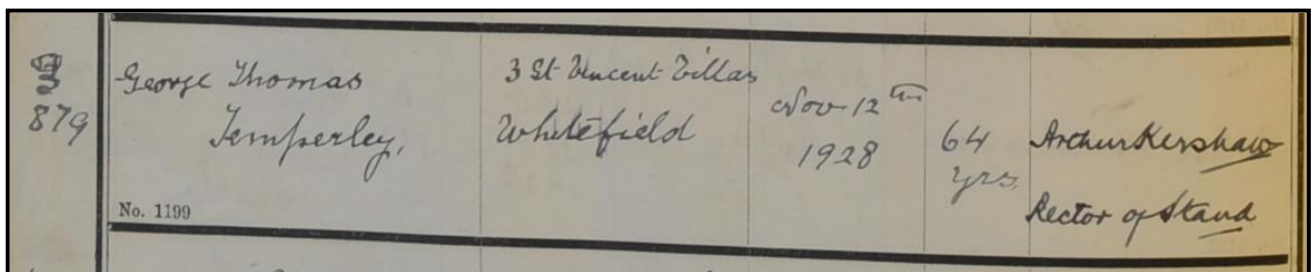 879
George Thomas
Temperley,
No. 1199
3 St Vincent Villas
Whitefield
Nov 12th
1928
64
yrs.
Arthur Kershaw
Rector of Stand